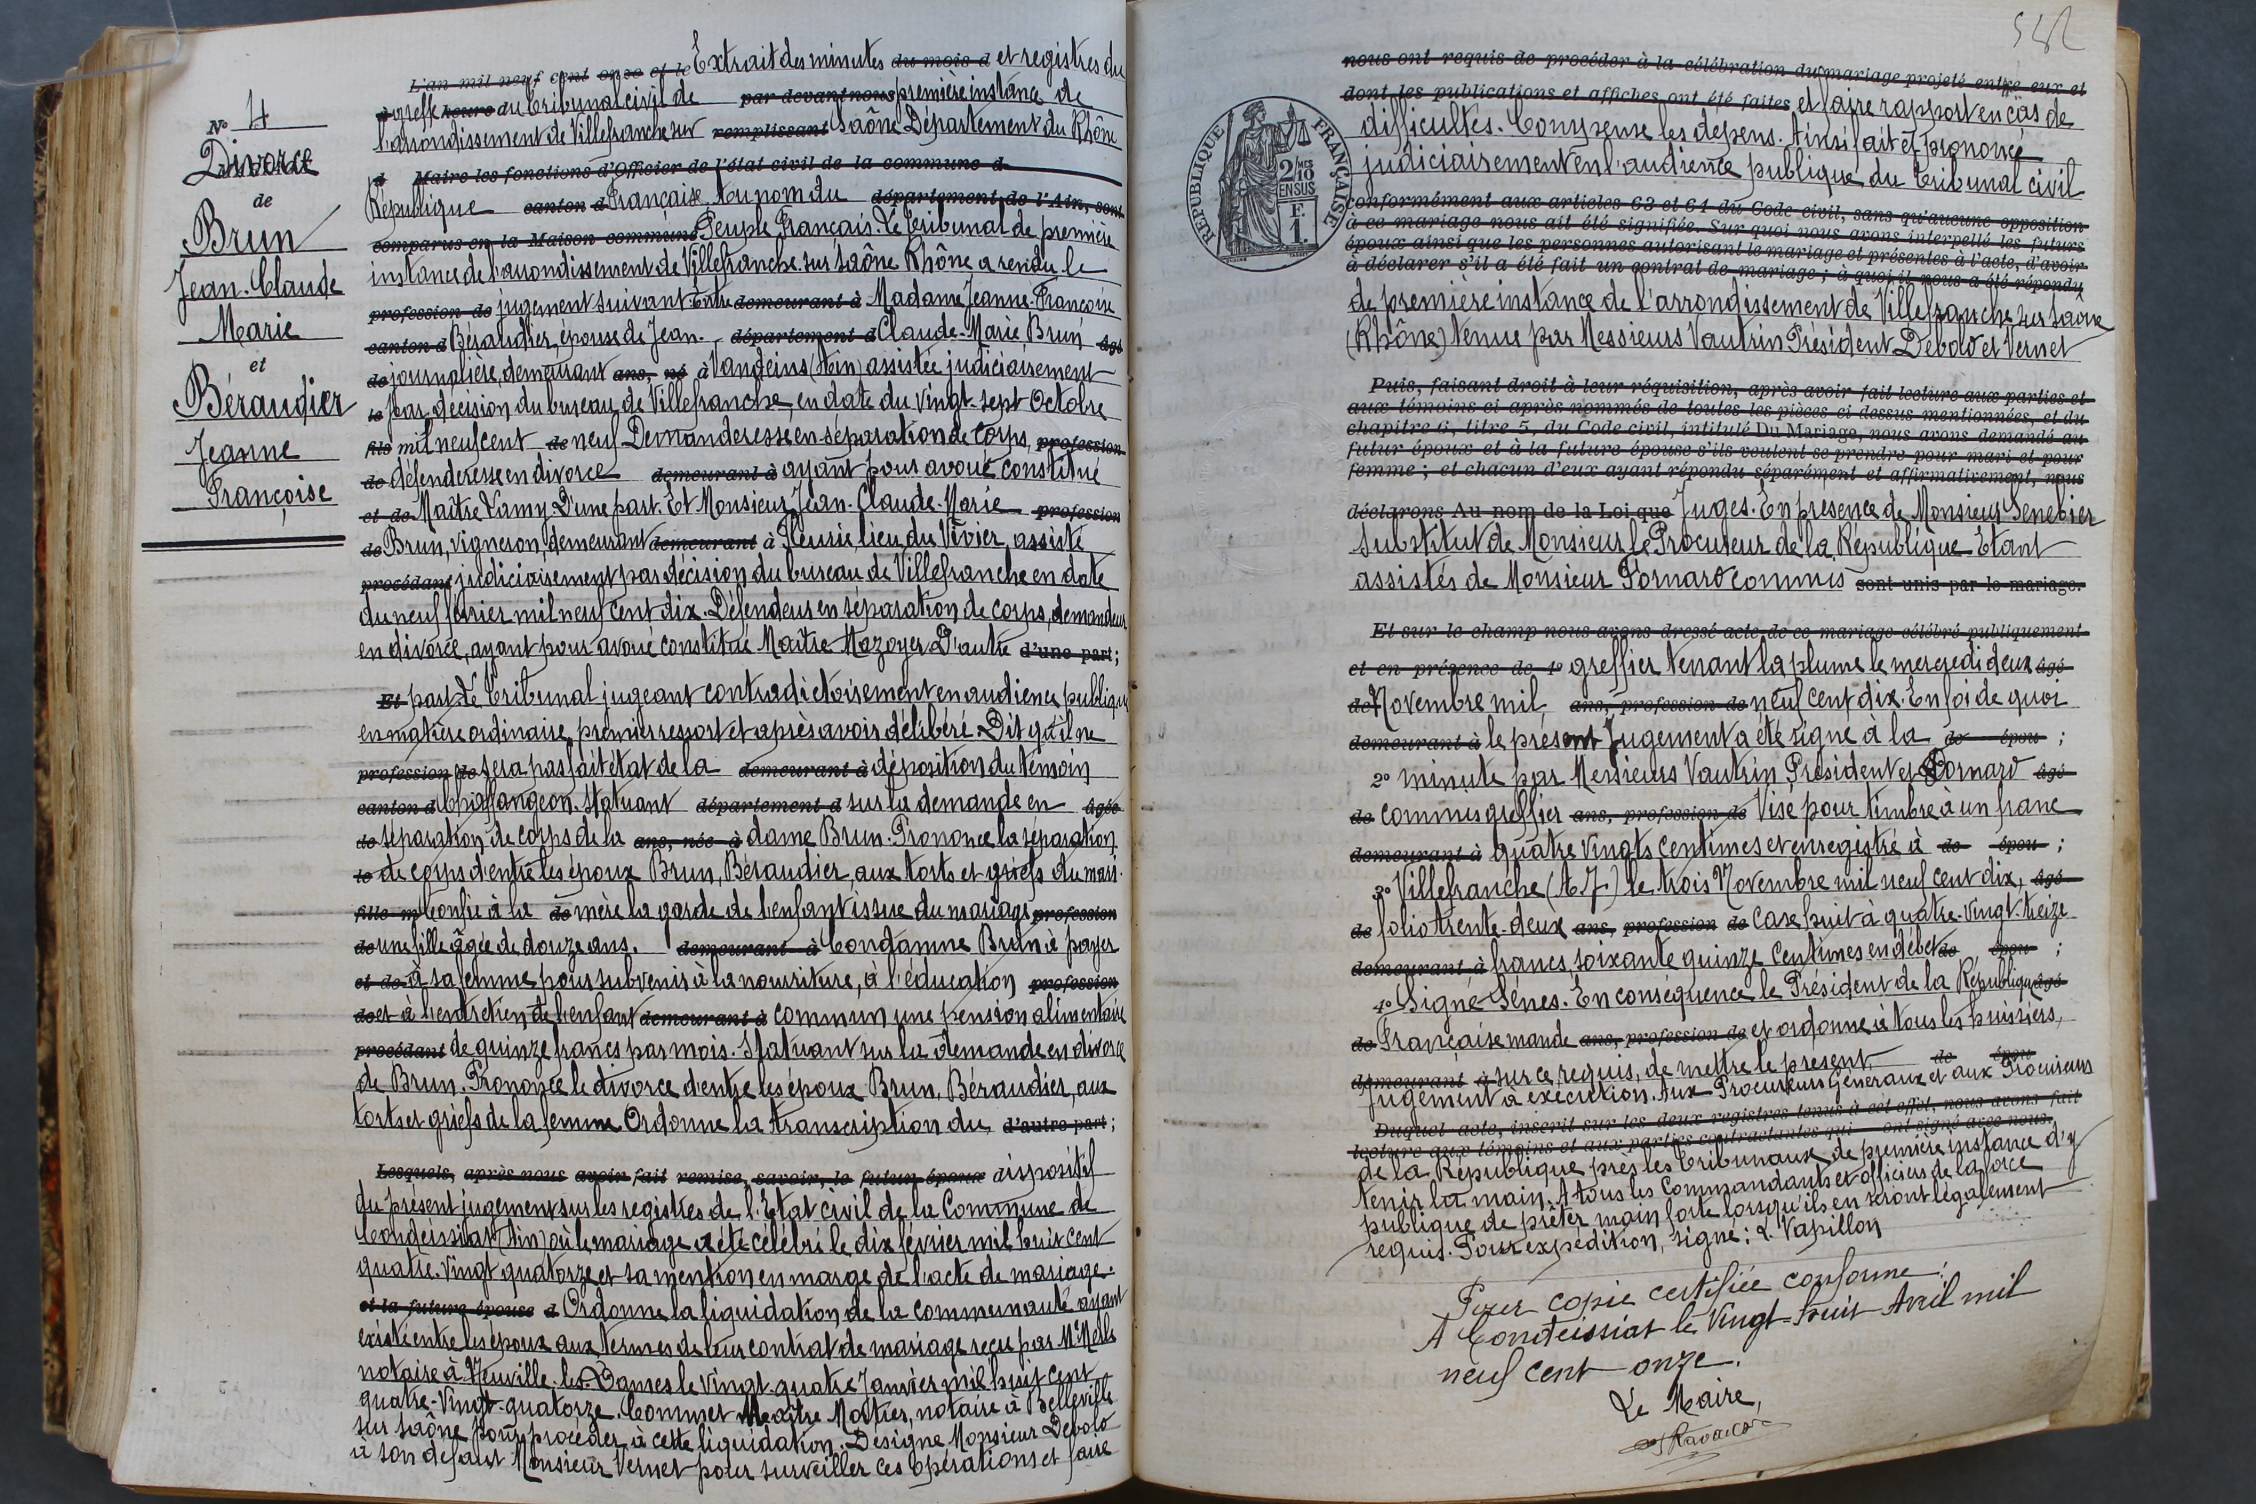 L'an mil neuf cent onze et le Extrait des minutes du mois d et registres du
à greffe heure du Tribunal civil de par devant nous première instance de
l'arrondissement de Villefranche sur remplissant Saône Département du Rhône
d Maire les fonctions d'Officier de l'état civil de la commune d
République canton d Française. Au nom du département de l'Ain, sont
comparus en la Maison commune Peuple Français. Le Tribunal de première
instance de l'arrondissement de Villefranche sur Saône Rhône a rendu le
profession de jugement suivant: Entre demeurant à Madame Jeanne-Françoise
canton d Béraudier, épouse de Jean- département d Claude-Marie Brun âgé
de journalière, demeurant ans, né à Vandeins (Ain) assistée judiciairement
le par décision du bureau de Villefranche, en date du vingt-sept Octobre
fils mil neuf cent de neuf Demanderesse en séparation de corps, profession
de défenderesse en divorce demeurant à ayant pour avoué constitué
et de Maître Lamy D'une part. Et Monsieur Jean-Claude-Marie profession
de Brun, vigneron, demeurant demeurant à Fleurie, lieu du Vivier, assisté
procédant judiciairement par décision du bureau de Villefranche en date
du neuf février mil neuf cent dix. Défendeur en séparation de corps, demandeur
en divorce, ayant pour avoué constitué Maître Mazoyer D'autre d'une part;
Et part. Le Tribunal jugeant contradictoirement en audience publique
en matière ordinaire, premier ressort et après avoir délibéré. Dit qu'il ne
profession de sera pas fait état de la demeurant à déposition du témoin
canton d Chaffangeon. Statuant département d sur la demande en âgée
de séparation de corps de la ans, née à dame Brun. Prononce la séparation
le de corps d'entre les époux Brun, Béraudier, aux torts et griefs du mari.
fille m Confie à la de mère la garde de l'enfant issue du mariage profession
de une fille âgée de douze ans. demeurant à Condamne Brun à payer
et de à sa femme pour subvenir à la nourriture, à l'éducation profession
de et à l'entretien de l'enfant demeurant à commun une pension alimentaire
procédant de quinze francs par mois. Statuant sur la demande en divorce
de Brun. Prononce le divorce d'entre les époux Brun, Béraudier, aux
torts et griefs de la femme. Ordonne la transcription du d'autre part;
Lesquels, après nous avoir fait remise, savoir, le futur époux dispositif
du présent jugement sur les registres de l'Etat civil de la Commune de
Condeissiat (Ain) où le mariage a été célébré le dix février mil huit cent
quatre-vingt quatorze et sa mention en marge de l'acte de mariage.
et la future épouse d Ordonne la liquidation de la communauté ayant
existé entre les époux aux termes de leur contrat de mariage reçu par Me
notaire à Neuville-les-Dames le vingt-quatre Janvier mil huit cent
quatre-vingt-quatorze. Commet Maître notaire à Belleville
sur Saône pour procéder à cette liquidation. Désigne Monsieur Debolo
à son défaut Monsieur Vernet pour surveiller ces opérations et faire
No 4
Divorce
de
Brun
Jean-Claude
Marie
et
Béraudier
Jeanne
Françoise
542
RÉPUBLIQUE FRANÇAISE
2/10 EN SUS
F. 1.
nous ont requis de procéder à la célébration du mariage projeté entre eux et
dont les publications et affiches ont été faites et faire rapport en cas de
difficultés. Compense les dépens. Ainsi fait et prononcé
judiciairement en l'audience publique du Tribunal civil
conformément aux articles 63 et 64 du Code civil, sans qu'aucune opposition
à ce mariage nous ait été signifiée. Sur quoi nous avons interpellé les futurs
époux ainsi que les personnes autorisant le mariage et présentes à l'acte, d'avoir
à déclarer s'il a été fait un contrat de mariage; à quoi il nous a été répondu
de première instance de l'arrondissement de Villefranche sur Saône
(Rhône) tenue par Messieurs Vautrin Président Debolo et Vernet
Puis, faisant droit à leur réquisition, après avoir fait lecture aux parties et
aux témoins ci-après nommés de toutes les pièces ci-dessus mentionnées, et du
chapitre 6, titre 5, du Code civil, intitulé Du Mariage, nous avons demandé au
futur époux et à la future épouse s'ils veulent se prendre pour mari et pour
femme; et chacun d'eux ayant répondu séparément et affirmativement, nous
déclarons Au nom de la Loi que Juges. En présence de Monsieur Senebier
Substitut de Monsieur le Procureur de la République Étant
assistés de Monsieur Pornard commis sont unis par le mariage.
Et sur le champ nous avons dressé acte de ce mariage célébré publiquement
et en présence de 1o greffier tenant la plume le mercredi deux âgé
de Novembre mil ans, profession de neuf cent dix. En foi de quoi
demeurant à le présent Jugement a été signé à la de épou ;
2o minute par Messieurs Vautrin Président et Pornard âgé
de commis greffier ans, profession de Visé pour timbre à un franc
demeurant à quatre vingts centimes et enregistré à de épou ;
3o Villefranche (A J) le trois Novembre mil neuf cent dix, âgé
de folio trente-deux ans, profession de case huit à quatre-vingt-treize
demeurant à francs, soixante quinze centimes en débet de épou ;
4o Signé Sénes. En conséquence le Président de la République âgé
de Française mande ans, profession de et ordonne à tous les huissiers,
demeurant à sur ce requis, de mettre le présent de épou
Jugement à exécution. Aux Procureurs Généraux et aux Procureurs
Duquel acte, inscrit sur les deux registres tenus à cet effet, nous avons fait
lecture aux témoins et aux parties contractantes qui ont signé avec nous.
de la République près les Tribunaux de première instance d'y
tenir la main. A tous les Commandants et officiers de la force
publique de prêter main forte lorsqu'ils en seront légalement
requis. Pour expédition, signé: L. Vapillon
Pour copie certifiée conforme:
A Condeissiat le Vingt-huit Avril mil
neuf cent onze.
Le Maire,